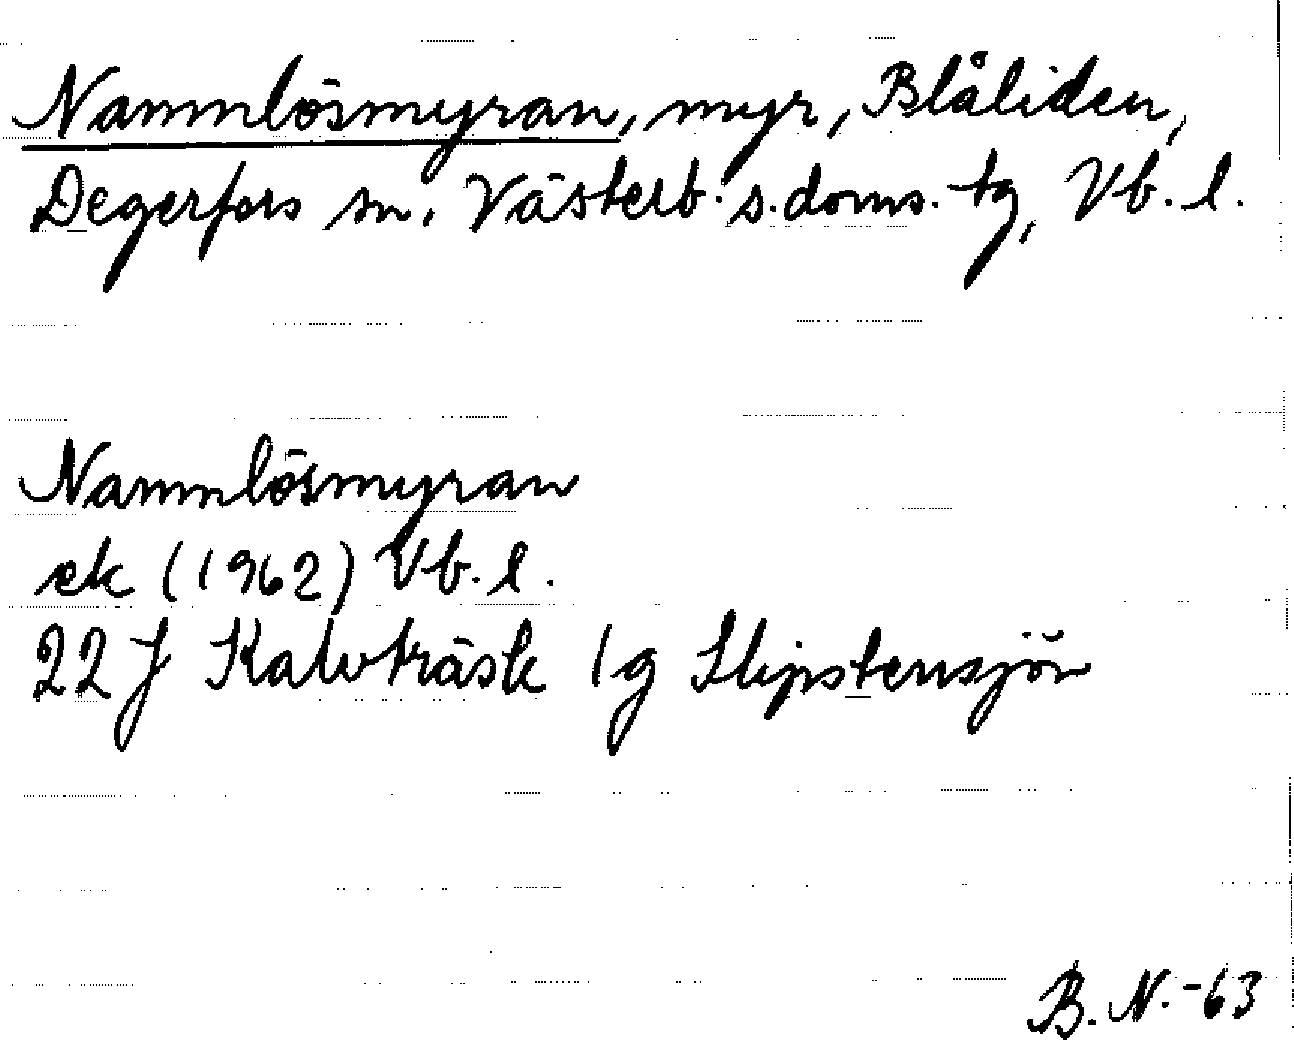 Nammlösmyran, myr, Blåliden,
Degerfors sn. Västerb. s. doms. tg, Vb. l.
Nammlösmyran
ek (1962) Vb. l.
22 J Kalvträsk 1g Slipstensjön
B. N. -63